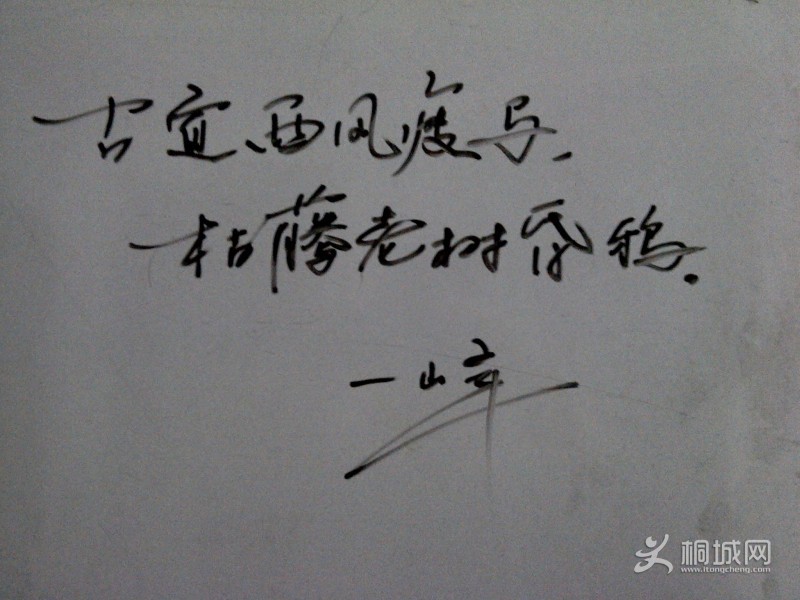 古宜、西风瘦马.
枯藤老树昏鸦.
一峰
桐城网
www.itongcheng.com